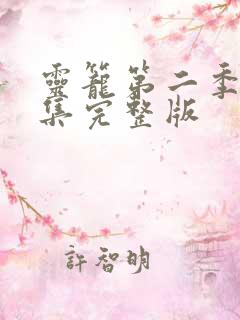 靈籠第二季
集完整版
許智明